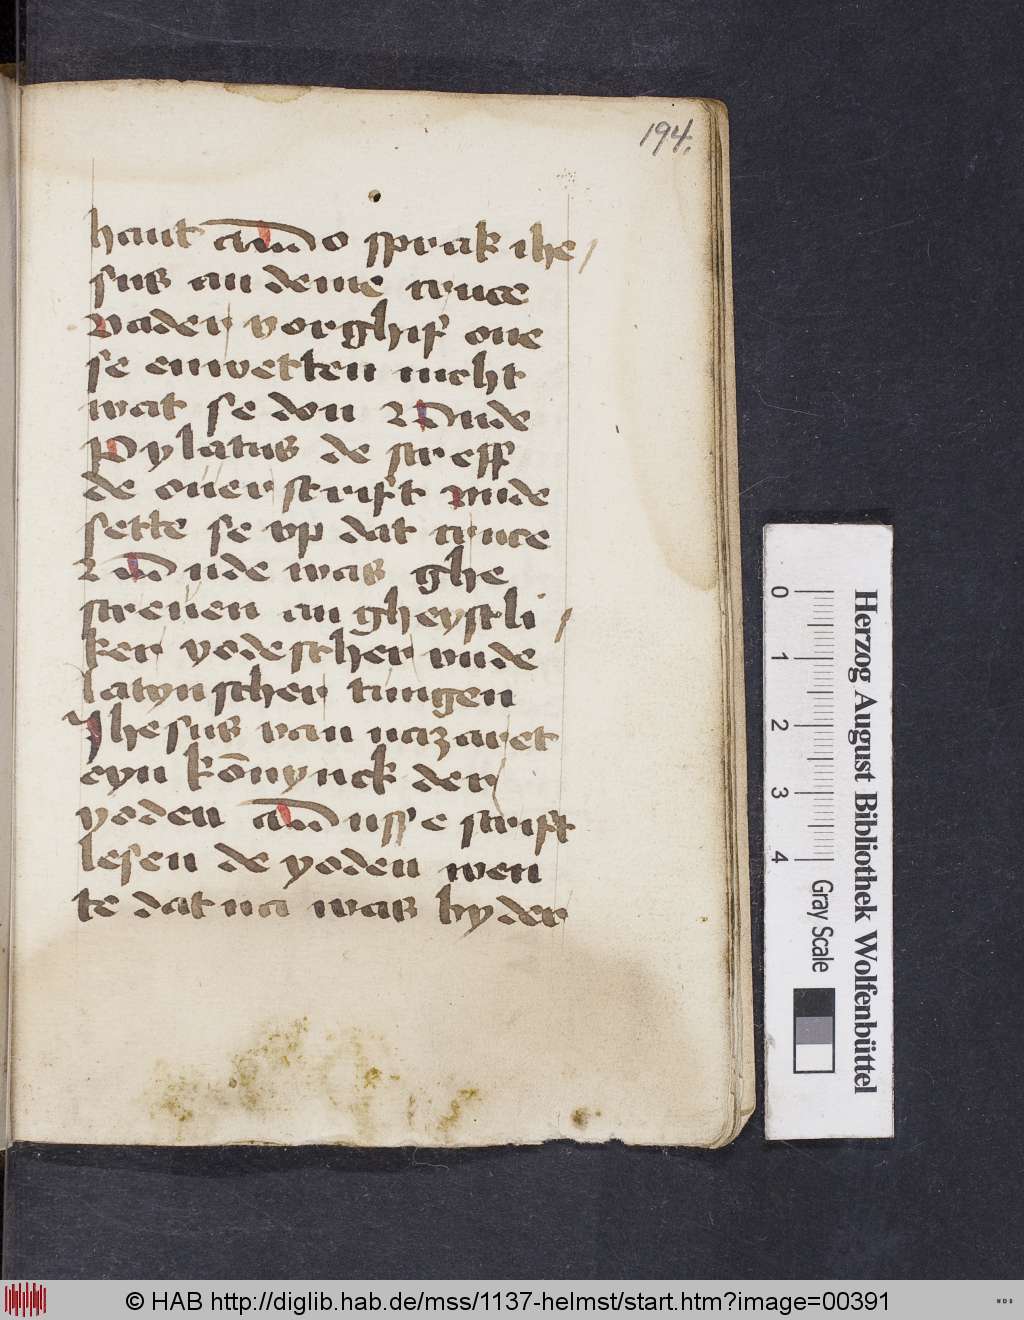 194.
hant Do sprak ihe/
sus an deme cruce
vader vorghif one
se enwetten nicht
wat se don Unde
Pylatus de screff
de ouerscrift vnde
sette se vp dat cruce
unde was ghe
screuen an gheystli/
ker yodescher vnde
latynscher tungen
Jhesus van nazaret
eyn kōnynck der
yoden Dusse scrift
lesen de yoden wen
te dat na was by der
0 1 2 3 4
Gray Scale
Herzog August Bibliothek Wolfenbüttel
© HAB http://diglib.hab.de/mss/1137-helmst/start.htm?image=00391